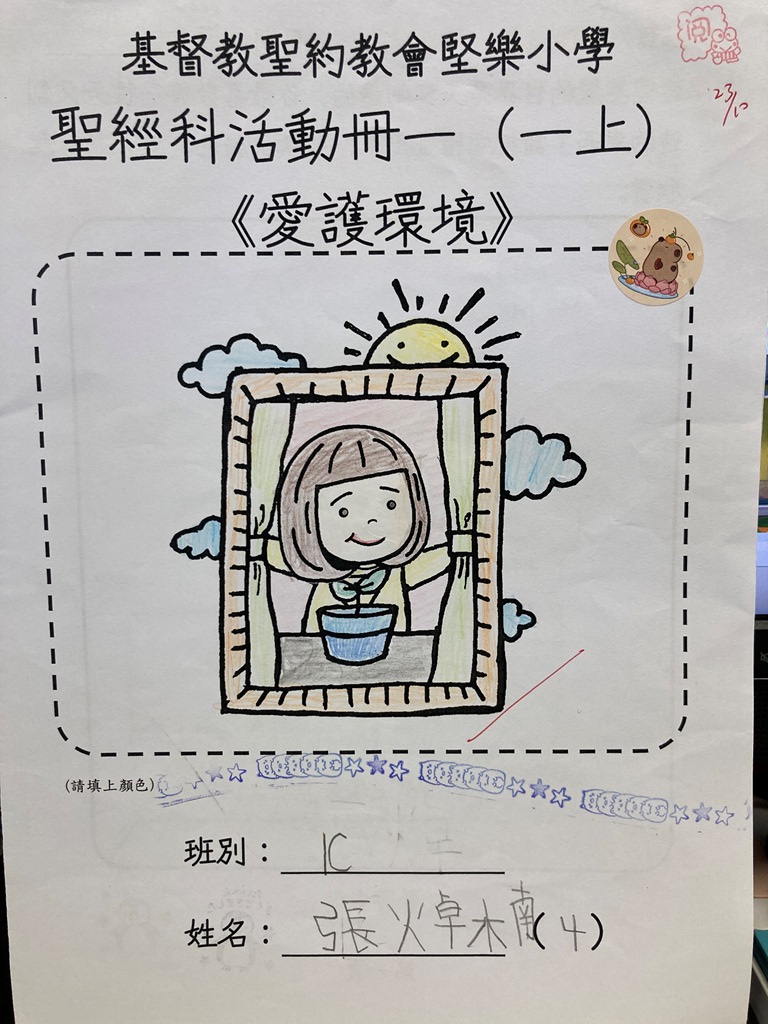 閱
基督教聖約教會堅樂小學
23/10
聖經科活動冊一（一上）
《愛護環境》
(請填上顏色)
班別：1C
姓名：張焯楠(4)